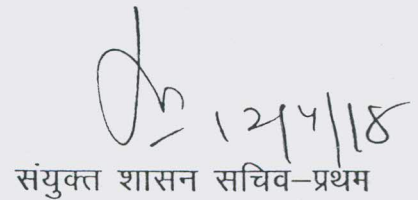 12/4/18
संयुक्त शासन सचिव-प्रथम